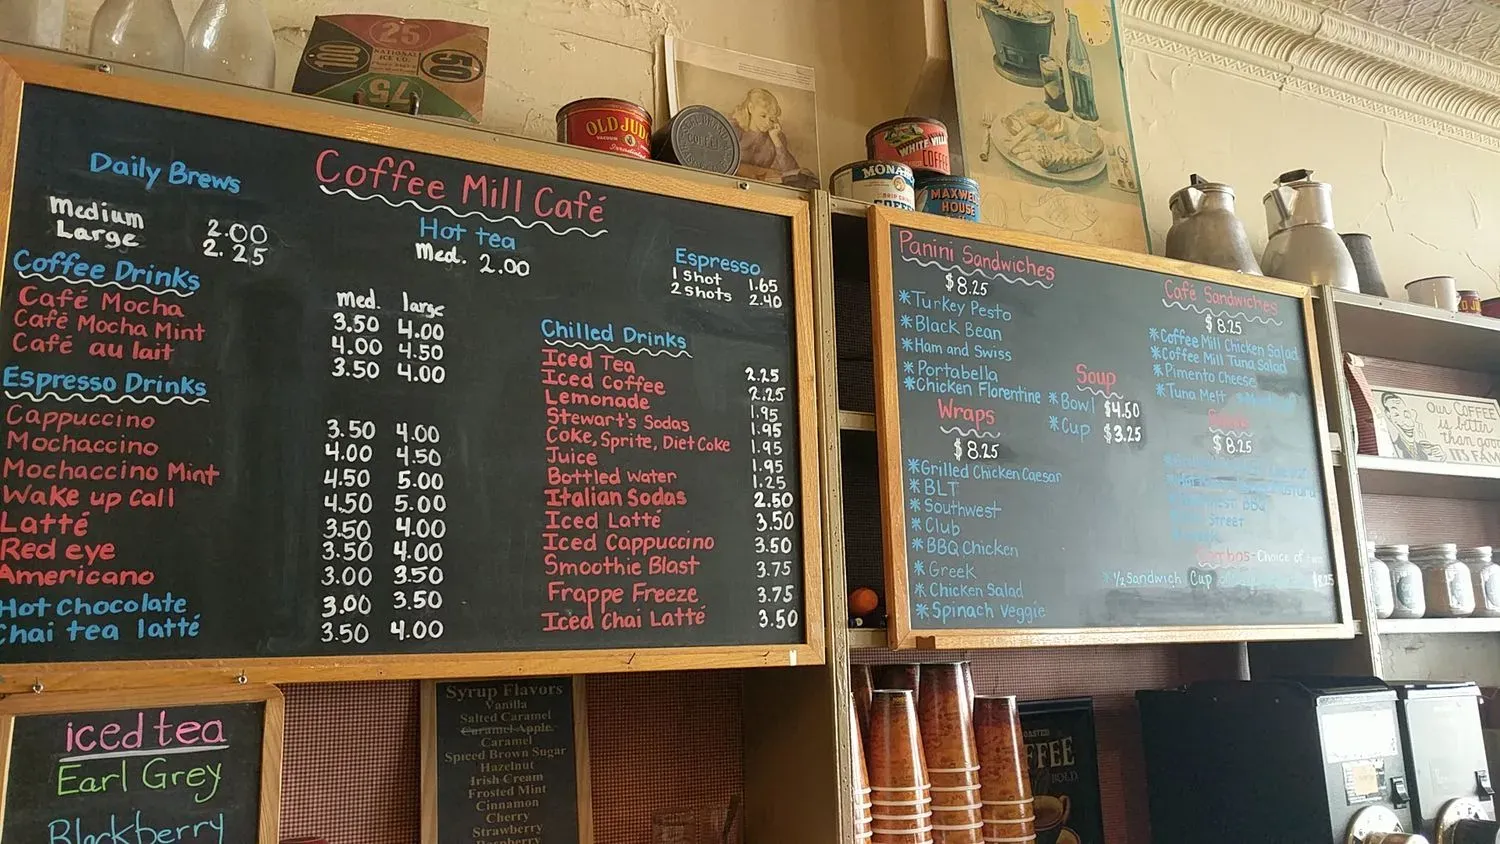 25
NATIONAL
ICE CO.
50
75
OLD JUD
VACUUM
COFFEE
WHITE VILL
COFFEE
MONA
DRIP GRIND
COFFEE
MAXWE
HOUSE
Coffee Mill Café
Daily Brews
Medium 2.00
Large 2.25
Hot tea
Med. 2.00
Espresso
1 shot 1.65
2 shots 2.40
Coffee Drinks
med. large
Café Mocha 3.50 4.00
Café Mocha Mint 4.00 4.50
Café au lait 3.50 4.00
Espresso Drinks
Cappuccino 3.50 4.00
Mochaccino 4.00 4.50
Mochaccino Mint 4.50 5.00
Wake up call 4.50 5.00
Latté 3.50 4.00
Red eye 3.50 4.00
Americano 3.00 3.50
Hot Chocolate 3.00 3.50
Chai tea latté 3.50 4.00
Chilled Drinks
Iced Tea 2.25
Iced Coffee 2.25
Lemonade 1.95
Stewart's Sodas 1.95
Coke, Sprite, Diet Coke 1.95
Juice 1.95
Bottled water 1.25
Italian Sodas 2.50
Iced Latté 3.50
Iced Cappuccino 3.50
Smoothie Blast 3.75
Frappe Freeze 3.75
Iced Chai Latté 3.50
Panini Sandwiches
$8.25
*Turkey Pesto
*Black Bean
*Ham and Swiss
*Portabella
*Chicken Florentine
Wraps
$8.25
*Grilled Chicken Caesar
*BLT
*Southwest
*Club
*BBQ Chicken
*Greek
*Chicken Salad
*Spinach Veggie
Soup
*Bowl $4.50
*Cup $3.25
Café Sandwiches
$8.25
*Coffee Mill Chicken Salad
*Coffee Mill Tuna Salad
*Pimento Cheese
*Tuna Melt
$8.25
BBQ
Street
Combos-Choice of
*1/2 Sandwich Cup
OUR COFFEE
is better
than good
IT'S FAM
iced tea
Earl Grey
Blackberry
Syrup Flavors
Vanilla
Salted Caramel
Caramel Apple
Caramel
Spiced Brown Sugar
Hazelnut
Irish Cream
Frosted Mint
Cinnamon
Cherry
Strawberry
Raspberry
OASTED
FFEE
BOLD